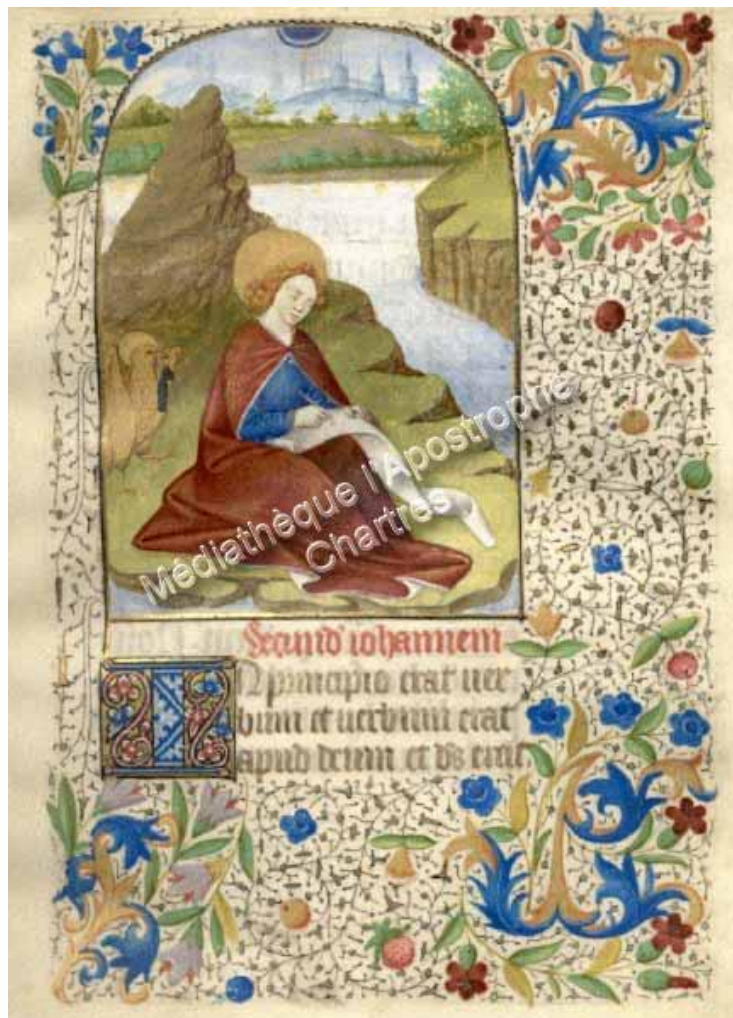 Médiathèque l'Apostrophe
Chartres
Secund' iohannem
IN principio erat uer
bum et uerbum erat
apud deum et ds erat